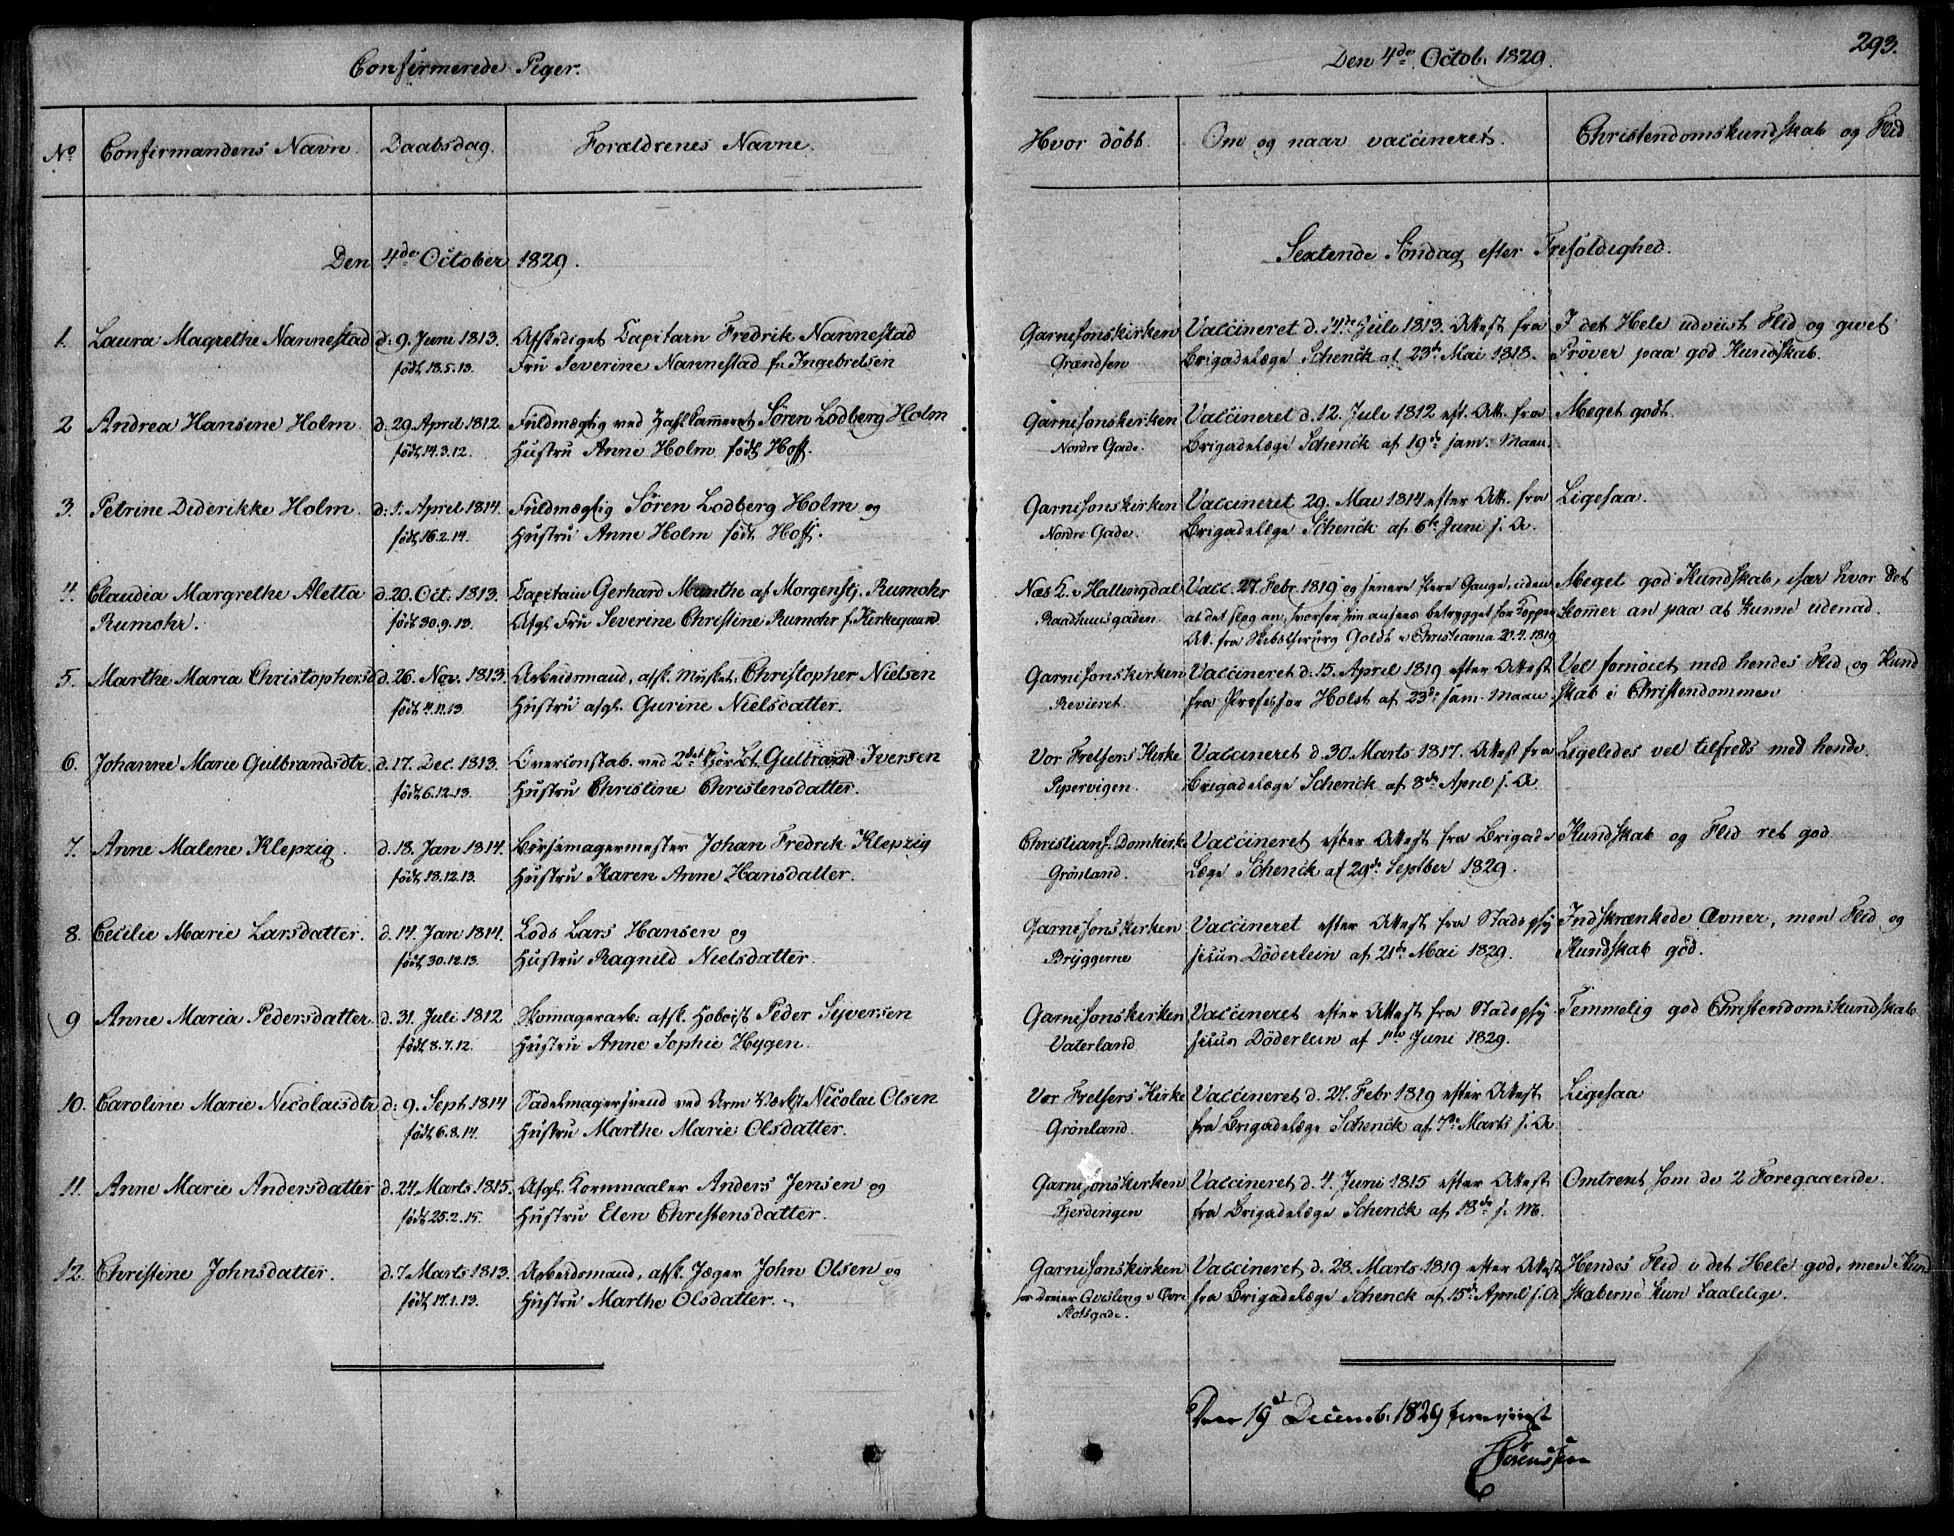 Confirmerede Piger.
Den 4de Octob. 1829.
293.
No Confirmandens Navn. Daabsdag. Forældrenes Navne.
Hvor döbt. Om og naar vaccineret. Christendomskundskab og Flid
Den 4de October 1829.
Sextende Söndag efter Trefoldighed.
1. Laura Magrethe Nannestad d. 9. Juni 1813. Afskediget Capitain Fredrik Nannestad
födt 18.5.13. Fru Severine Nannestad f. Ingebretsen
Garnisonskirken Vaccineret d. Juli 1813. Attest fra I det Hele udviist Flid og givet
Grændsen Brigadelæge Schenck af 23de Mai 1818. Pröver paa god Kundskab.
2 Andrea Hansine Holm d. 29. April 1812 Fuldmægtig ved Sören Lodberg Holm
födt 14.3.12. Hustru Anne Holm födt Hoff.
Garnisonskirken Vaccineret d. 12. Juli 1812 eft. Att. fra Meget godt.
Nordre Gade. Brigadelæge Schenck af 19de sam. Maan.
3. Petrine Diderikke Holm d. 1. April 1814. Fuldmægtig Sören Lodberg Holm og
födt 16.2.14. Hustru Anne Holm födt Hoff.
Garnisonskirken Vaccineret 29. Mai 1814 efter Att. fra Ligesaa.
Nordre Gade. Brigadelæge Schenck af 6te Juni s. A.
4. Claudia Margrethe Aletta d. 20. Oct. 1813. Capitain Gerhard Munthe af Morgenstj. Rumohr
Rumohr. födt 30.9.13. Afg. Fru Severine Christine Rumohr f. Kirkegaard
Næs K. i Hallingdal Vacc. 27. Febr. 1819 og senere flere Gange, uden Meget god Kundskab, især hvor det
Raadhuusgaden. at det slog an, hvorfor hun ansees betrygget for Kopper kommer an paa at kunne udenad.
Att. fra Guldb. i Christiania
5. Marthe Maria Christophersd. d. 26. Nov. 1813. Arbeidsmand, afsk. Musket. Christopher Nielsen
födt 4.11.13. Hustru afg. Gurine Nielsdatter.
Garnisonskirken Vaccineret d. 15. April 1819 efter Attest Vel fornöiet med hendes Flid og Kund
Revieret. fra Professor Holst af 23de sam. Maan. skab i Christendommen
6. Johanne Marie Gulbrandsdtr. d. 17. Dec. 1813. Overconstab. ved 2det Gulbrand Iversen
födt 6.12.13. Hustru Christine Christensdatter.
Vor Frelsers Kirke Vaccineret d. 30. Marts 1817. Attest fra Ligeledes vel tilfreds med hende.
Pipervigen. Brigadelæge Schenck af 8de April s. A.
7. Anne Malene Klepzig. d. 18. Jan 1814. Bössemagermester Johan Fredrik Klepzig
födt 18.12.13. Hustru Karen Anne Hansdatter.
Christians. Domkirke Vaccineret efter Attest fra Brigade Kundskab og Flid ret god.
Grönland. Læge Schenck af 29de Septber 1829.
8. Cecilie Marie Larsdatter. d. 14. Jan 1814. Lods Lars Hansen og
födt 30.12.13. Hustru Ragnild Nielsdatter.
Garnisonskirken Vaccineret efter Attest fra Stadsphy Indskrænkede Evner, men Flid og
Bryggerne sicus Döderlein af 21de Mai 1829. Kundskab god.
9 Anne Maria Pedersdatter d. 31. Juli 1812 Skomagerarb. afsk. Hoboist Peder Syversen
födt 8.7.12. Hustru Anne Sophie Hygen.
Garnisonskirken Vaccineret efter Attest fra Stadsphy Temmelig god Christendomskundskab
Vaterland sicus Döderlein af 1ste Juni 1829.
10. Caroline Marie Nicolaisdtr. d. 9. Sept 1814 Sadelmagersvend ved Nicolai Olsen
födt 6.8.14. Hustru Marthe Marie Olsdatter.
Vor Frelsers Kirke Vaccineret d. 27. Febr 1819 efter Attest Ligesaa
Grönland. fra Brigadelæge Schenck af 7de Marts s. A.
11. Anne Marie Andersdatter d. 24 Marts 1815. Afg. Kornmaaler Anders Jensen og
födt 25.2.15. Hustru Elen Christensdatter.
Garnisonskirken Vaccineret d. 4. Juni 1815 efter Attest Omtrent som de 2 Foregaaende.
Fjerdingen fra Brigadelæge Schenck af 18de s. M.
12. Christine Johnsdatter. d. 7. Marts 1813. Arbeidsmand, afsk. Jæger John Olsen og
födt 17.1.13. Hustru Marthe Olsdatter.
Garnisonskirken Vaccineret d. 28. Marts 1819 efter Attest Hendes Flid i det Hele god, men Kund
Slotsgade. fra Brigadelæge Schenck af 15de April s. A. skaberne kun taalelige.
Den 19de Decemb. 1829
Sörenssen